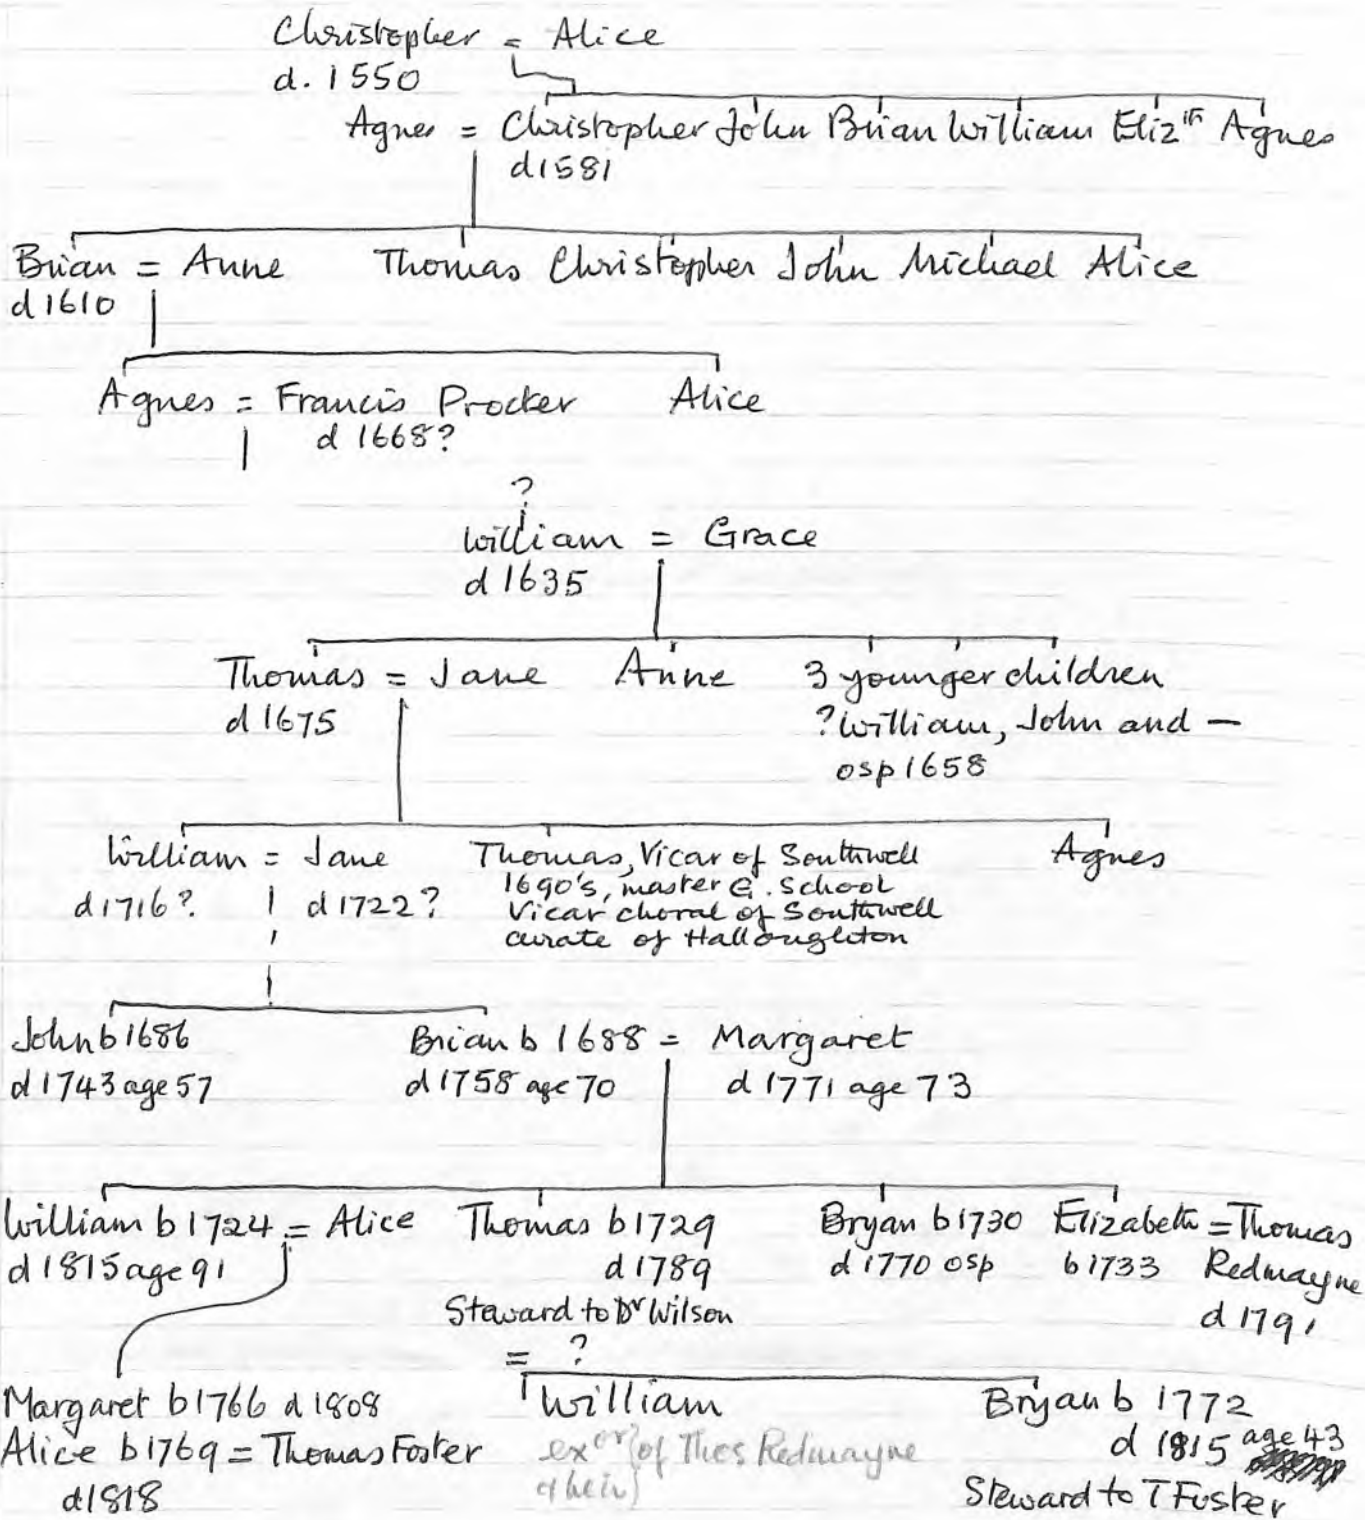 Christopher = Alice
d. 1550
Agnes = Christopher John Brian William Eliz^th Agnes
d 1581
Brian = Anne Thomas Christopher John Michael Alice
d 1610
Agnes = Francis Procker Alice
d 1668?
?
William = Grace
d 1635
Thomas = Jane Anne 3 younger children
d 1675 ? William, John and —
osp 1658
William = Jane Thomas, Vicar of Southwell Agnes
1690's, master G. School
d 1716? d 1722? Vicar choral of Southwell
curate of Halloughton
John b 1686 Brian b 1688 = Margaret
d 1743 age 57 d 1758 age 70 d 1771 age 73
William b 1724 = Alice Thomas b 1729 Bryan b 1730 Elizabeth = Thomas
d 1815 age 91 d 1789 d 1770 osp b 1733 Redmayne
Steward to Dr Wilson d 1791
= ?
Margaret b 1766 d 1808 William Bryan b 1772
Alice b 1769 = Thomas Foster ex^or of Thos Redmayne d 1815 age 43
d 1818 & heir Steward to T Foster